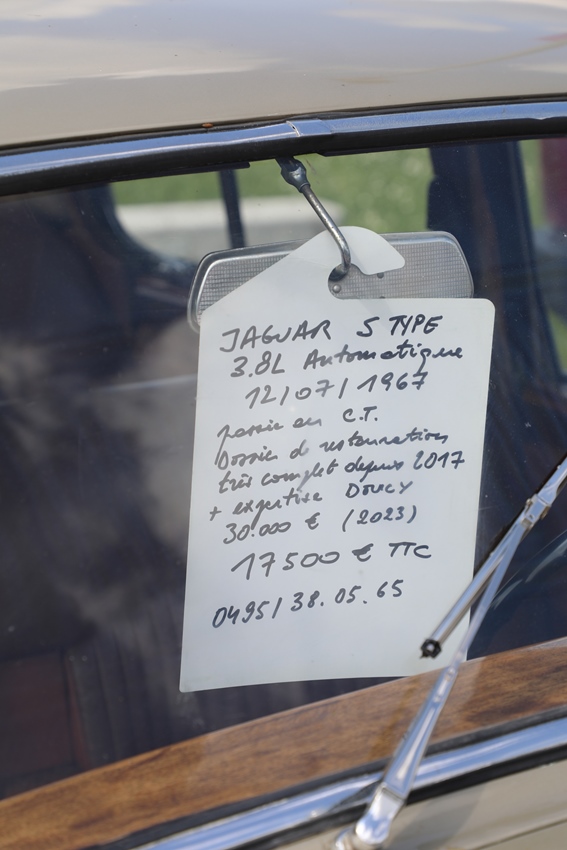 JAGUAR S TYPE
3.8L Automatique
12/07/1967
passée en C.T.
Dossier de restauration
très complet depuis 2017
+ expertise DOUCY
30.000 € (2023)
17500 € TTC
0495/38.05.65